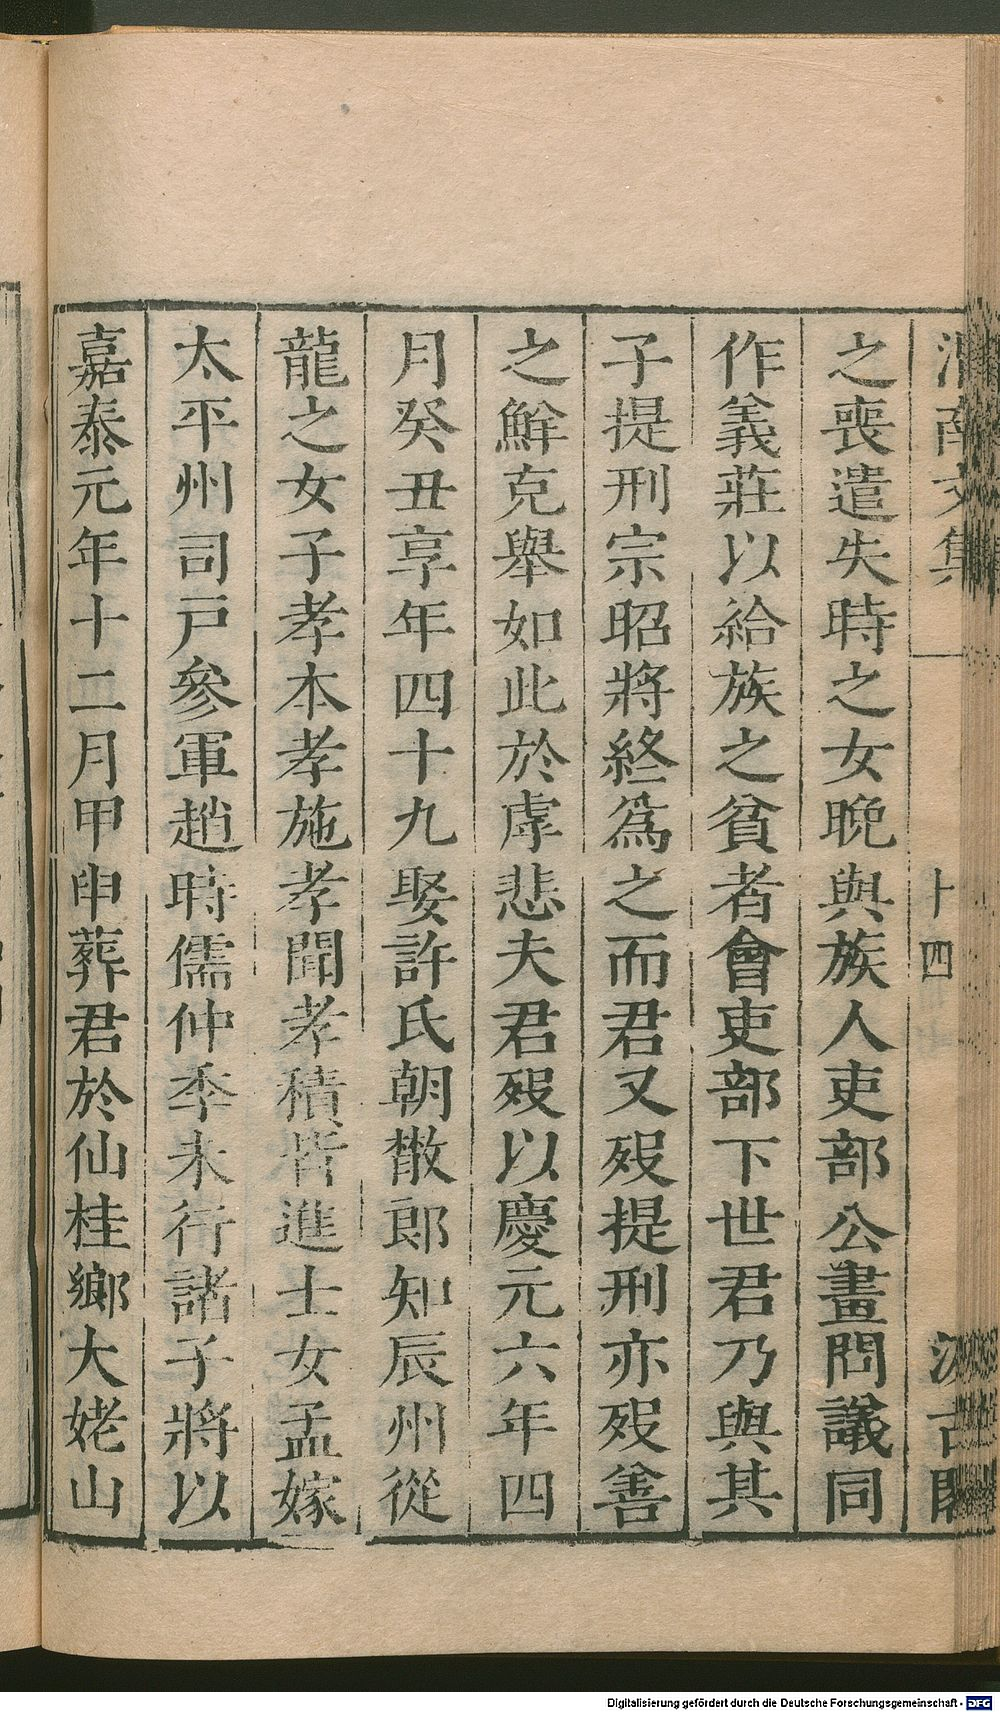 之喪遣失時之女晩與族人吏部公畫問議同
作義莊以給族之貧者會吏部下世君乃與其
子提刑宗昭將終爲之而君又歿提刑亦歿善
之鮮克舉如此於虖悲夫君歿以慶元六年四
月癸丑享年四十九娶許氏朝散郎知辰州從
龍之女子孝本孝施孝聞孝積皆進士女孟嫁
太平州司戸參軍趙時儒仲季未行諸子將以
嘉泰元年十二月甲申葬君於仙桂鄉大姥山
渭南文集
十四
汲古閣
Digitalisierung gefördert durch die Deutsche Forschungsgemeinschaft - DFG